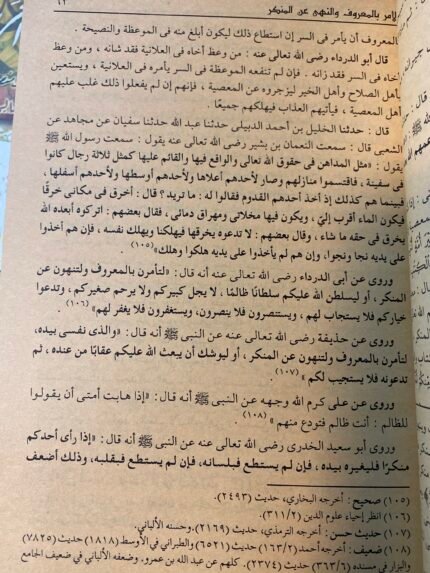 الأمر بالمعروف والنهى عن المنكر
بالمعروف أن يأمر فى السر إن استطاع ذلك ليكون أبلغ منه فى الموعظة والنصيحة.
قال أبو الدرداء رضى الله تعالى عنه : من وعظ أخاه فى العلانية فقد شانه ، ومن وعظ
أخاه فى السر فقد زانه . فإن لم تنفعه الموعظة فى السر يأمره فى العلانية ، ويستعين
بأهل الصلاح وأهل الخير ليزجروه عن المعصية ، فإنهم إن لم يفعلوا ذلك غلب عليهم
أهل المعصية ، فيأتيهم العذاب فيهلكهم جميعًا.
قال : حدثنا الخليل بن أحمد الدبيلى حدثنا عبد الله حدثنا سفيان عن مجاهد عن
الشعبى قال : سمعت النعمان بن بشير رضى الله تعالى عنه يقول : سمعت رسول الله ﷺ
يقول : «مثل المداهن فى حقوق الله تعالى والواقع فيها والقائم عليها كمثل ثلاثة رجال كانوا
فى سفينة ، فاقتسموا منازلهم وصار لأحدهم أعلاها ولأحدهم أوسطها ولأحدهم أسفلها ،
فبينما هم كذلك إذ أخذ أحدهم القدوم فقالوا له : ما تريد؟ قال : أخرق فى مكانى خرقًا
فيكون الماء أقرب إلىّ ، ويكون فيها مخلاتى ومهراق دمائى ، فقال بعضهم : اتركوه أبعده الله
يخرق فى حقه ما شاء ، وقال بعضهم : لا تدعوه يخرقها فيهلكنا ويهلك نفسه ، فإن هم أخذوا
على يديه نجا ونجوا، وإن هم لم يأخذوا على يديه هلكوا وهلك» (١٠٥)
وروى عن أبى الدرداء رضى الله تعالى عنه أنه قال : «لتأمرن بالمعروف ولتنهون عن
المنكر ، أو ليسلطن الله عليكم سلطانًا ظالمًا ، لا يجل كبيركم ولا يرحم صغيركم ، وتدعوا
خياركم فلا يستجاب لهم ، ويستنصرون فلا ينصرون، ويستغفرون فلا يغفر لهم» (١٠٦)
وروى عن حذيفة رضى الله تعالى عنه عن النبى ﷺ أنه قال: «والذى نفسى بيده،
لتأمرن بالمعروف ولتنهون عن المنكر ، أو ليوشك أن يبعث الله عليكم عقابًا من عنده ، ثم
تدعونه فلا يستجيب لكم» (١٠٧).
وروى عن على كرم الله وجهه عن النبى ﷺ أنه قال: «إذا هابت أمتى أن يقولوا
للظالم : أنت ظالم فتودع منهم» (١٠٨).
وروى أبو سعيد الخدرى رضى الله تعالى عنه عن النبى ﷺ أنه قال: «إذا رأى أحدكم
منكرًا فليغيره بيده ، فإن لم يستطع فبلسانه، فإن لم يستطع فبقلبه، وذلك أضعف
(١٠٥) صحيح : أخرجه البخارى، حديث (٢٤٩٣).
(١٠٦) انظر إحياء علوم الدين (٣١١/٢).
(١٠٧) حديث حسن : أخرجه الترمذى، حديث (٢١٦٩).وحسنه الألبانى.
(١٠٨) ضعيف : أخرجه أحمد (١٦٣/٢) حديث (٦٥٢١) والطبرانى فى الأوسط (١٨١٨) حديث (٧٨٢٥)
والبزار فى مسنده (٣٦٣/٦) حديث (٢٣٧٤). كلهم عن عبد الله بن عمرو. وضعفه الألبانى فى ضعيف الجامع